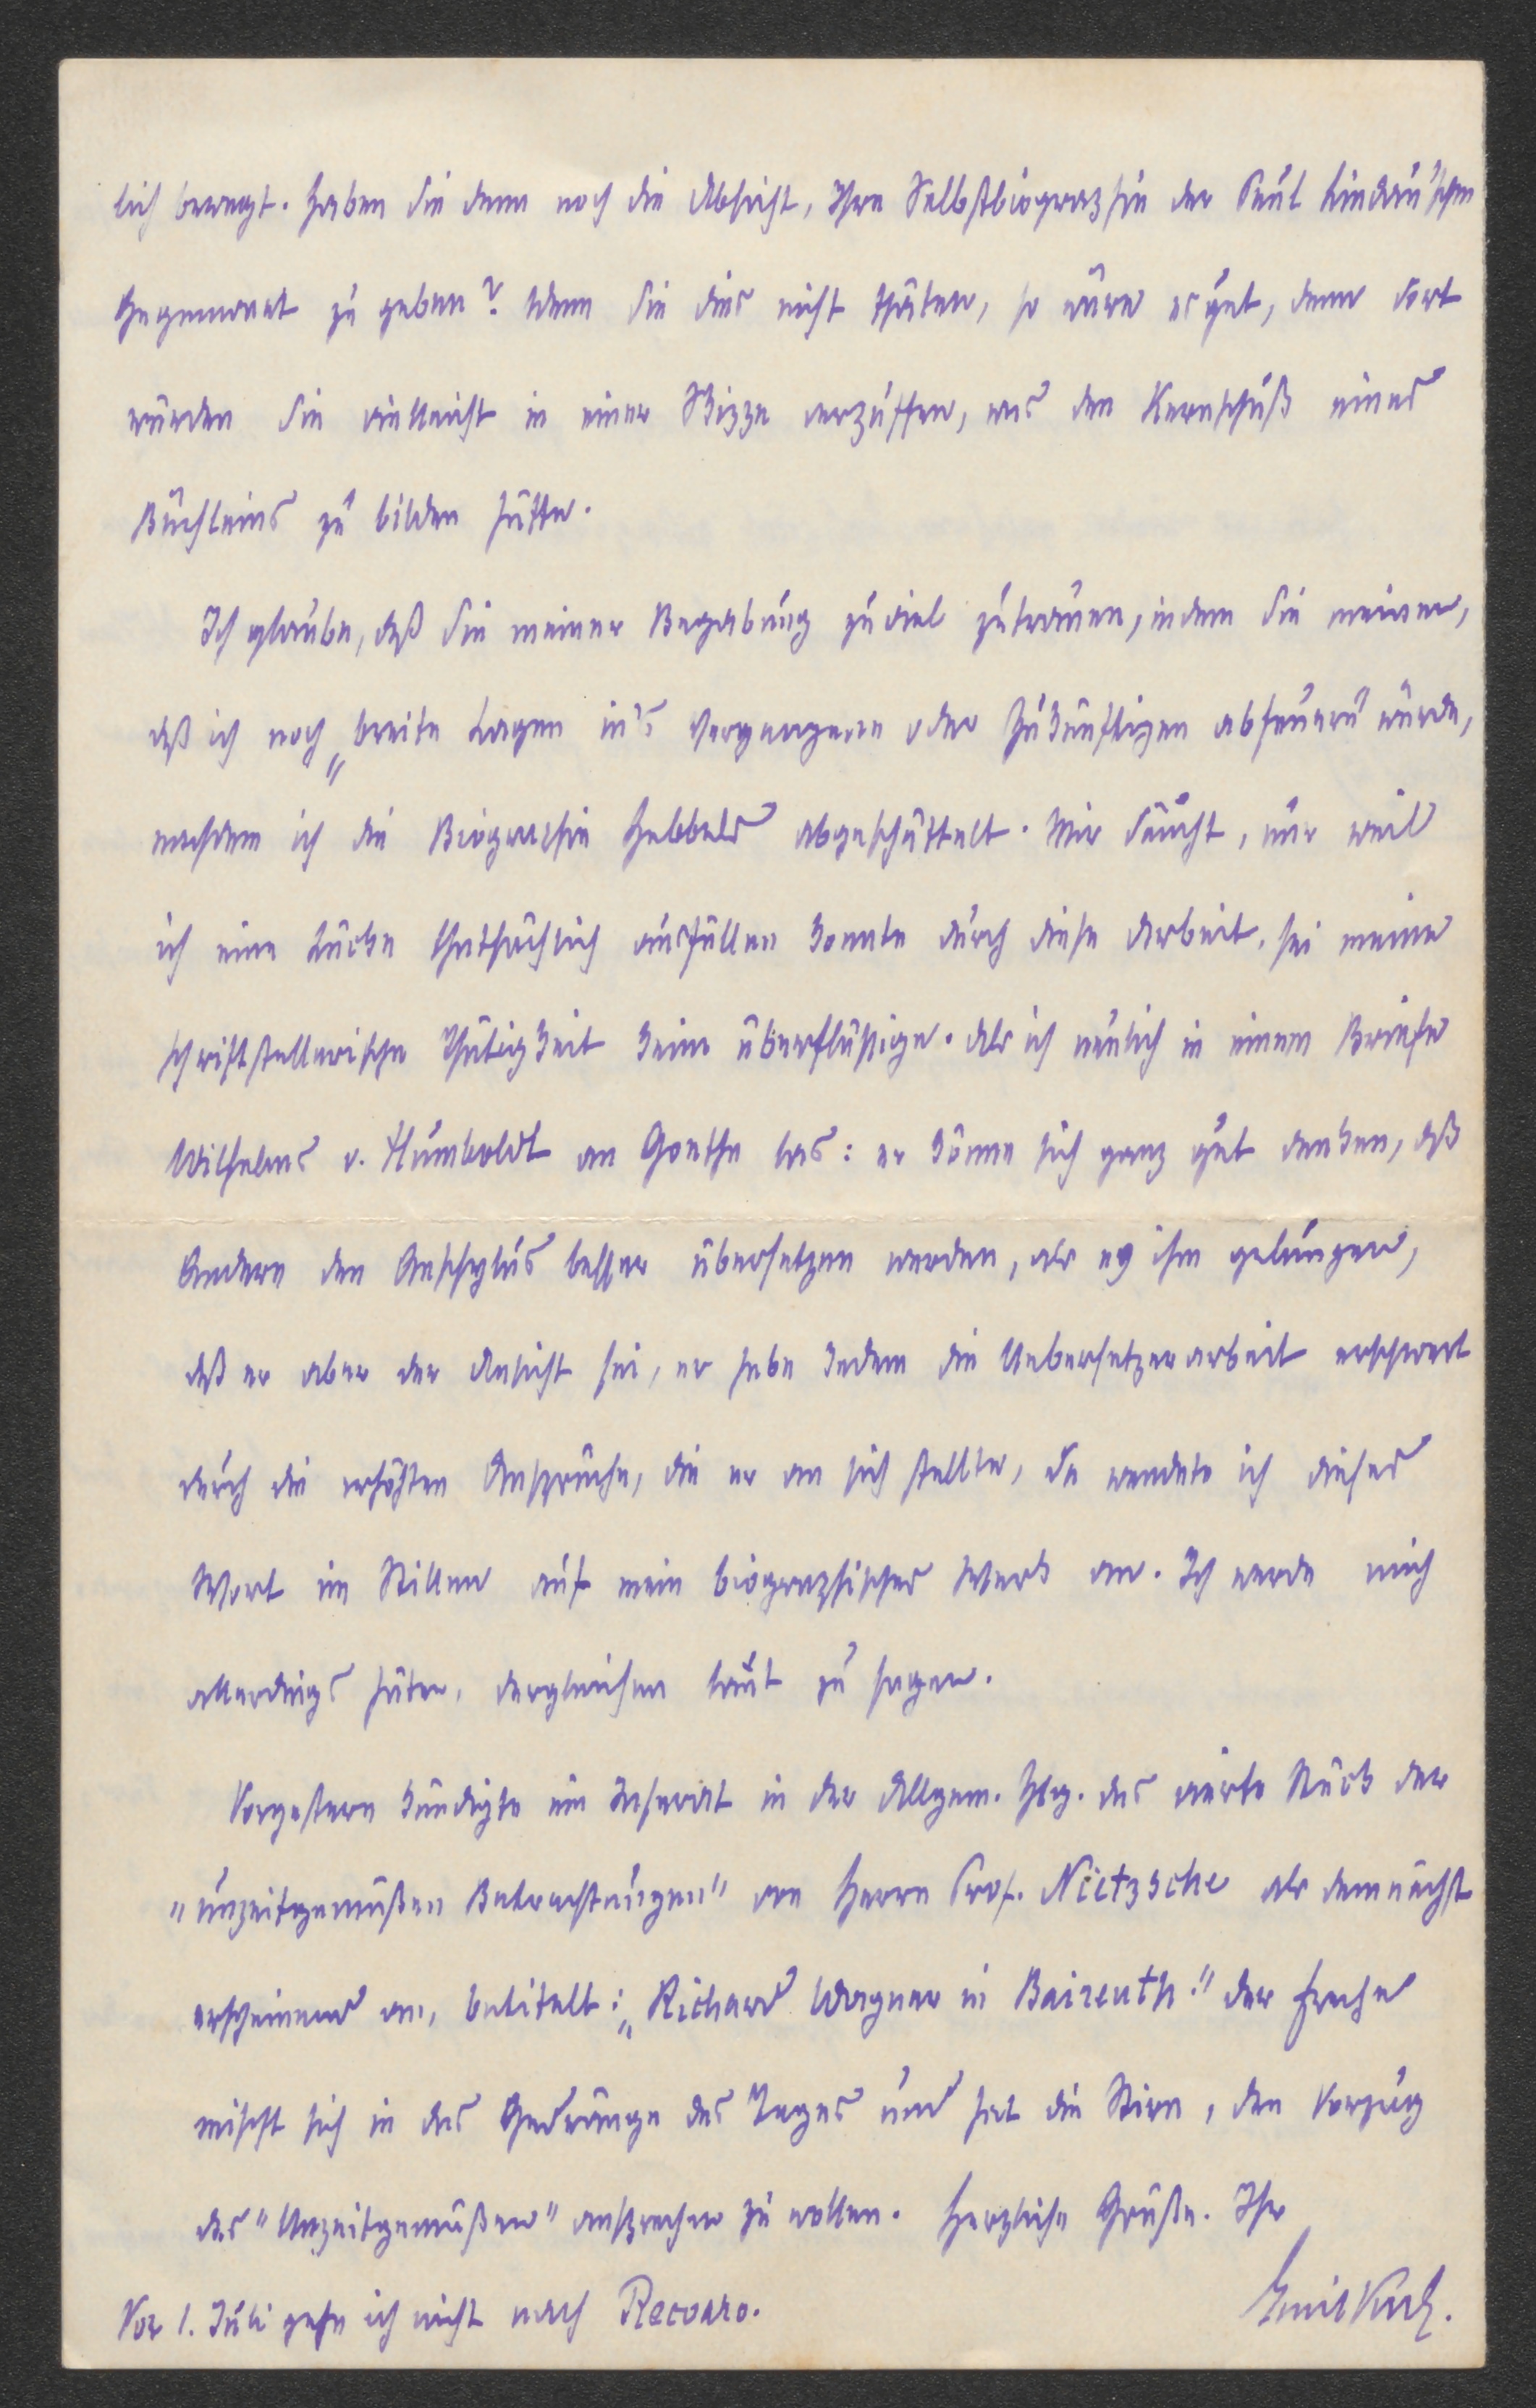 lich bewegt. Haben Sie denn noch die Absicht, Ihre Selbstbiographie der Paul Lindau'schen
Gegenwart zu geben? Wenn Sie dies nicht thäten, so wäre es gut, denn dort
würden Sie vielleicht in einer Skizze verpuffen, was den Kernschuß eines
Büchleins zu bilden hätte.
Ich glaube, daß Sie meiner Begabung zuviel zutrauen, indem Sie meinen,
daß ich noch „breite Lagen in's Vergangene oder Zukünftigen abfeuern" würde,
nachdem ich die Biographie Hebbels abgeschüttelt. Mir däucht, nur weil
ich eine Lücke thatsächlich ausfüllen konnte durch diese Arbeit, sei meine
schriftstellerische Thätigkeit keine überflüssige. Als ich neulich in einem Briefe
Wilhelms v. Humboldt an Goethe las: er könne sich ganz gut denken, daß
Andere den Aeschylus besser übersetzen werden, als es ihm gelungen,
daß er aber der Ansicht sei, er habe Jedem die Uebersetzerarbeit erschwert
durch die erhöhten Ansprüche, die er an sich stellte, da wendete ich dieses
Wort im Stillen auf mein biographisches Werk an. Ich werde mich
allerdings hüten, dergleichen laut zu sagen.
Vorgestern kündigte ein Inserat in der Allgem. Ztg. das vierte Stück der
"unzeitgemäßen Betrachtungen" von Herrn Prof. Nietzsche als demnächst
erscheinend an, betitelt: „Richard Wagner in Baireuth." Der Freche
mischt sich in das Gedränge des Tages und hat die Stirn, den Vorzug
des "Unzeitgemäßen" ansprechen zu wollen. Herzliche Grüße. Ihr
Emil Kuh.
Vor 1. Juli gehe ich nicht nach Recoaro.